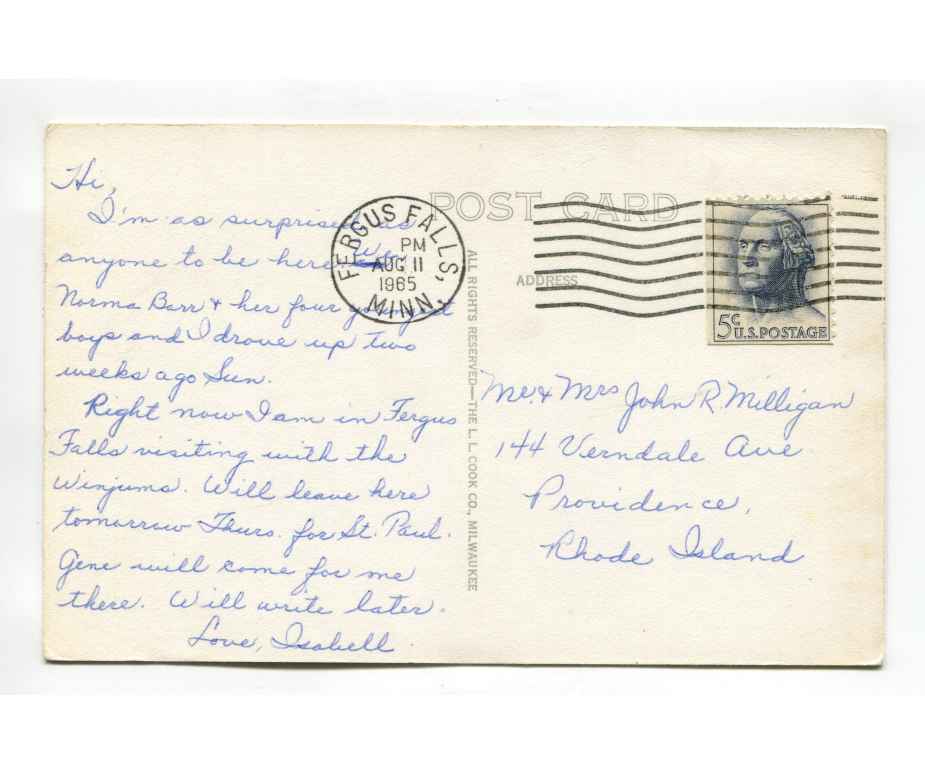 Hi,
I'm as surprised as
anyone to be here
Norma Barr & her four youngest
boys and I drove up two
weeks ago Sun.
Right now I am in Fergus
Falls visiting with the
Winjums. Will leave here
tomorrow Thurs. for St. Paul.
Gene will come for me
there. Will write later.
Love, Isabell
FERGUS FALLS,
PM
AUG 11
1965
MINN.
POST CARD
ADDRESS
ALL RIGHTS RESERVED—THE L. L. COOK CO., MILWAUKEE
5c
U.S. POSTAGE
Mr. & Mrs John R. Milligan
144 Verndale Ave
Providence,
Rhode Island